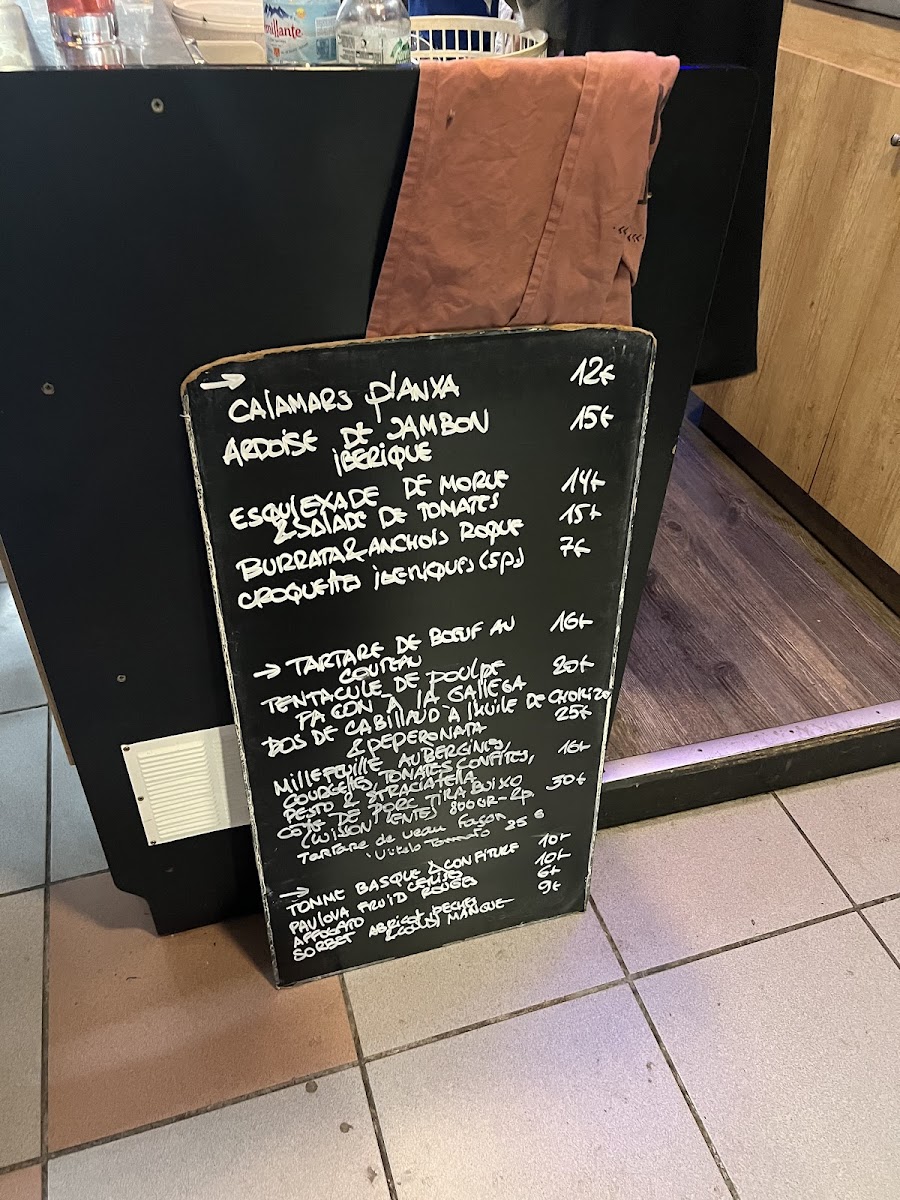 CALAMARS PLANXA 12€
ARDOISE DE JAMBON 15€
IBERIQUE
ESQUEIXADE DE MORUE 14€
& SALADE DE TOMATES
BURRATA & ANCHOIS ROQUE 15€
CROQUETTES IBERIQUES (5PS) 7€
→ TARTARE DE BŒUF AU 16€
COUTEAU
TENTACULE DE POULPE 20€
FACON À LA GALLEGA
DOS DE CABILLAUD À L'HUILE DE CHORIZO
& PEPERONATA 25€
MILLEFEUILLE AUBERGINES, 16€
COURGETTES, TOMATES CONFITES,
PESTO & STRACIATELLA
COTE DE PORC TIRABUIXO 30€
(CUISSON LENTE) 800GR-2P
TARTARE de veau façon 25€
'Vitelo Tonnato
→ TOMME BASQUE & CONFITURE 10€
CERISES
PAVLOVA FRUID ROUGES 10€
AFFOGATO 6€
SORBET ABRICOT PECHE 9€
& COULIS MANGUE